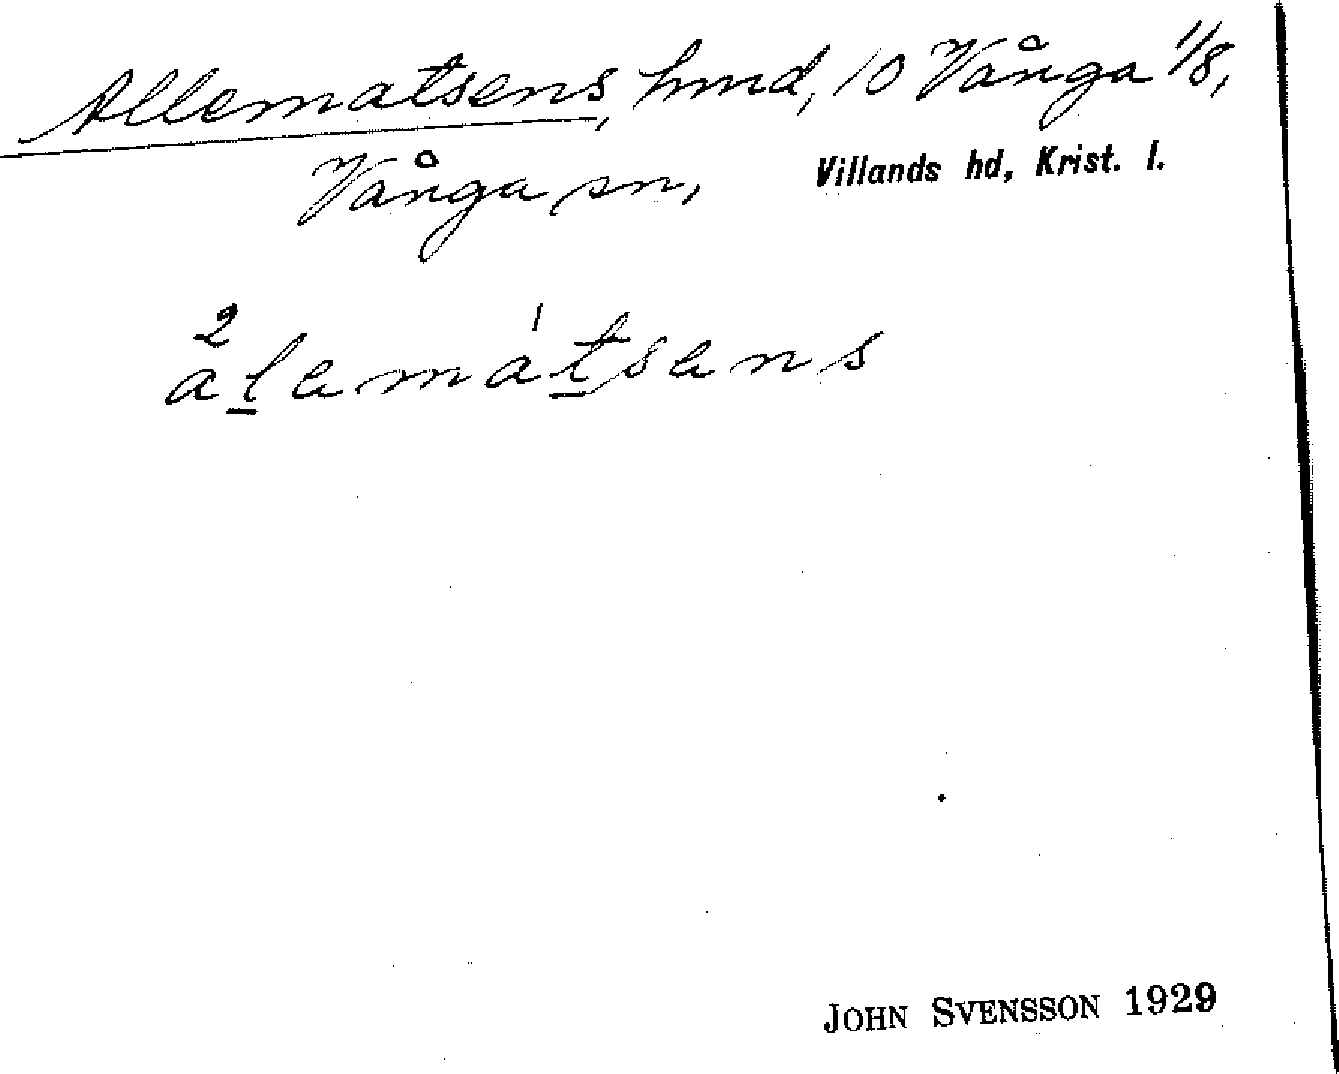 Allematsens, hmd, 10 Vånga 1/8,
Vånga sn, Villands hd, Krist. l.
2 1
alematsens
JOHN SVENSSON 1929